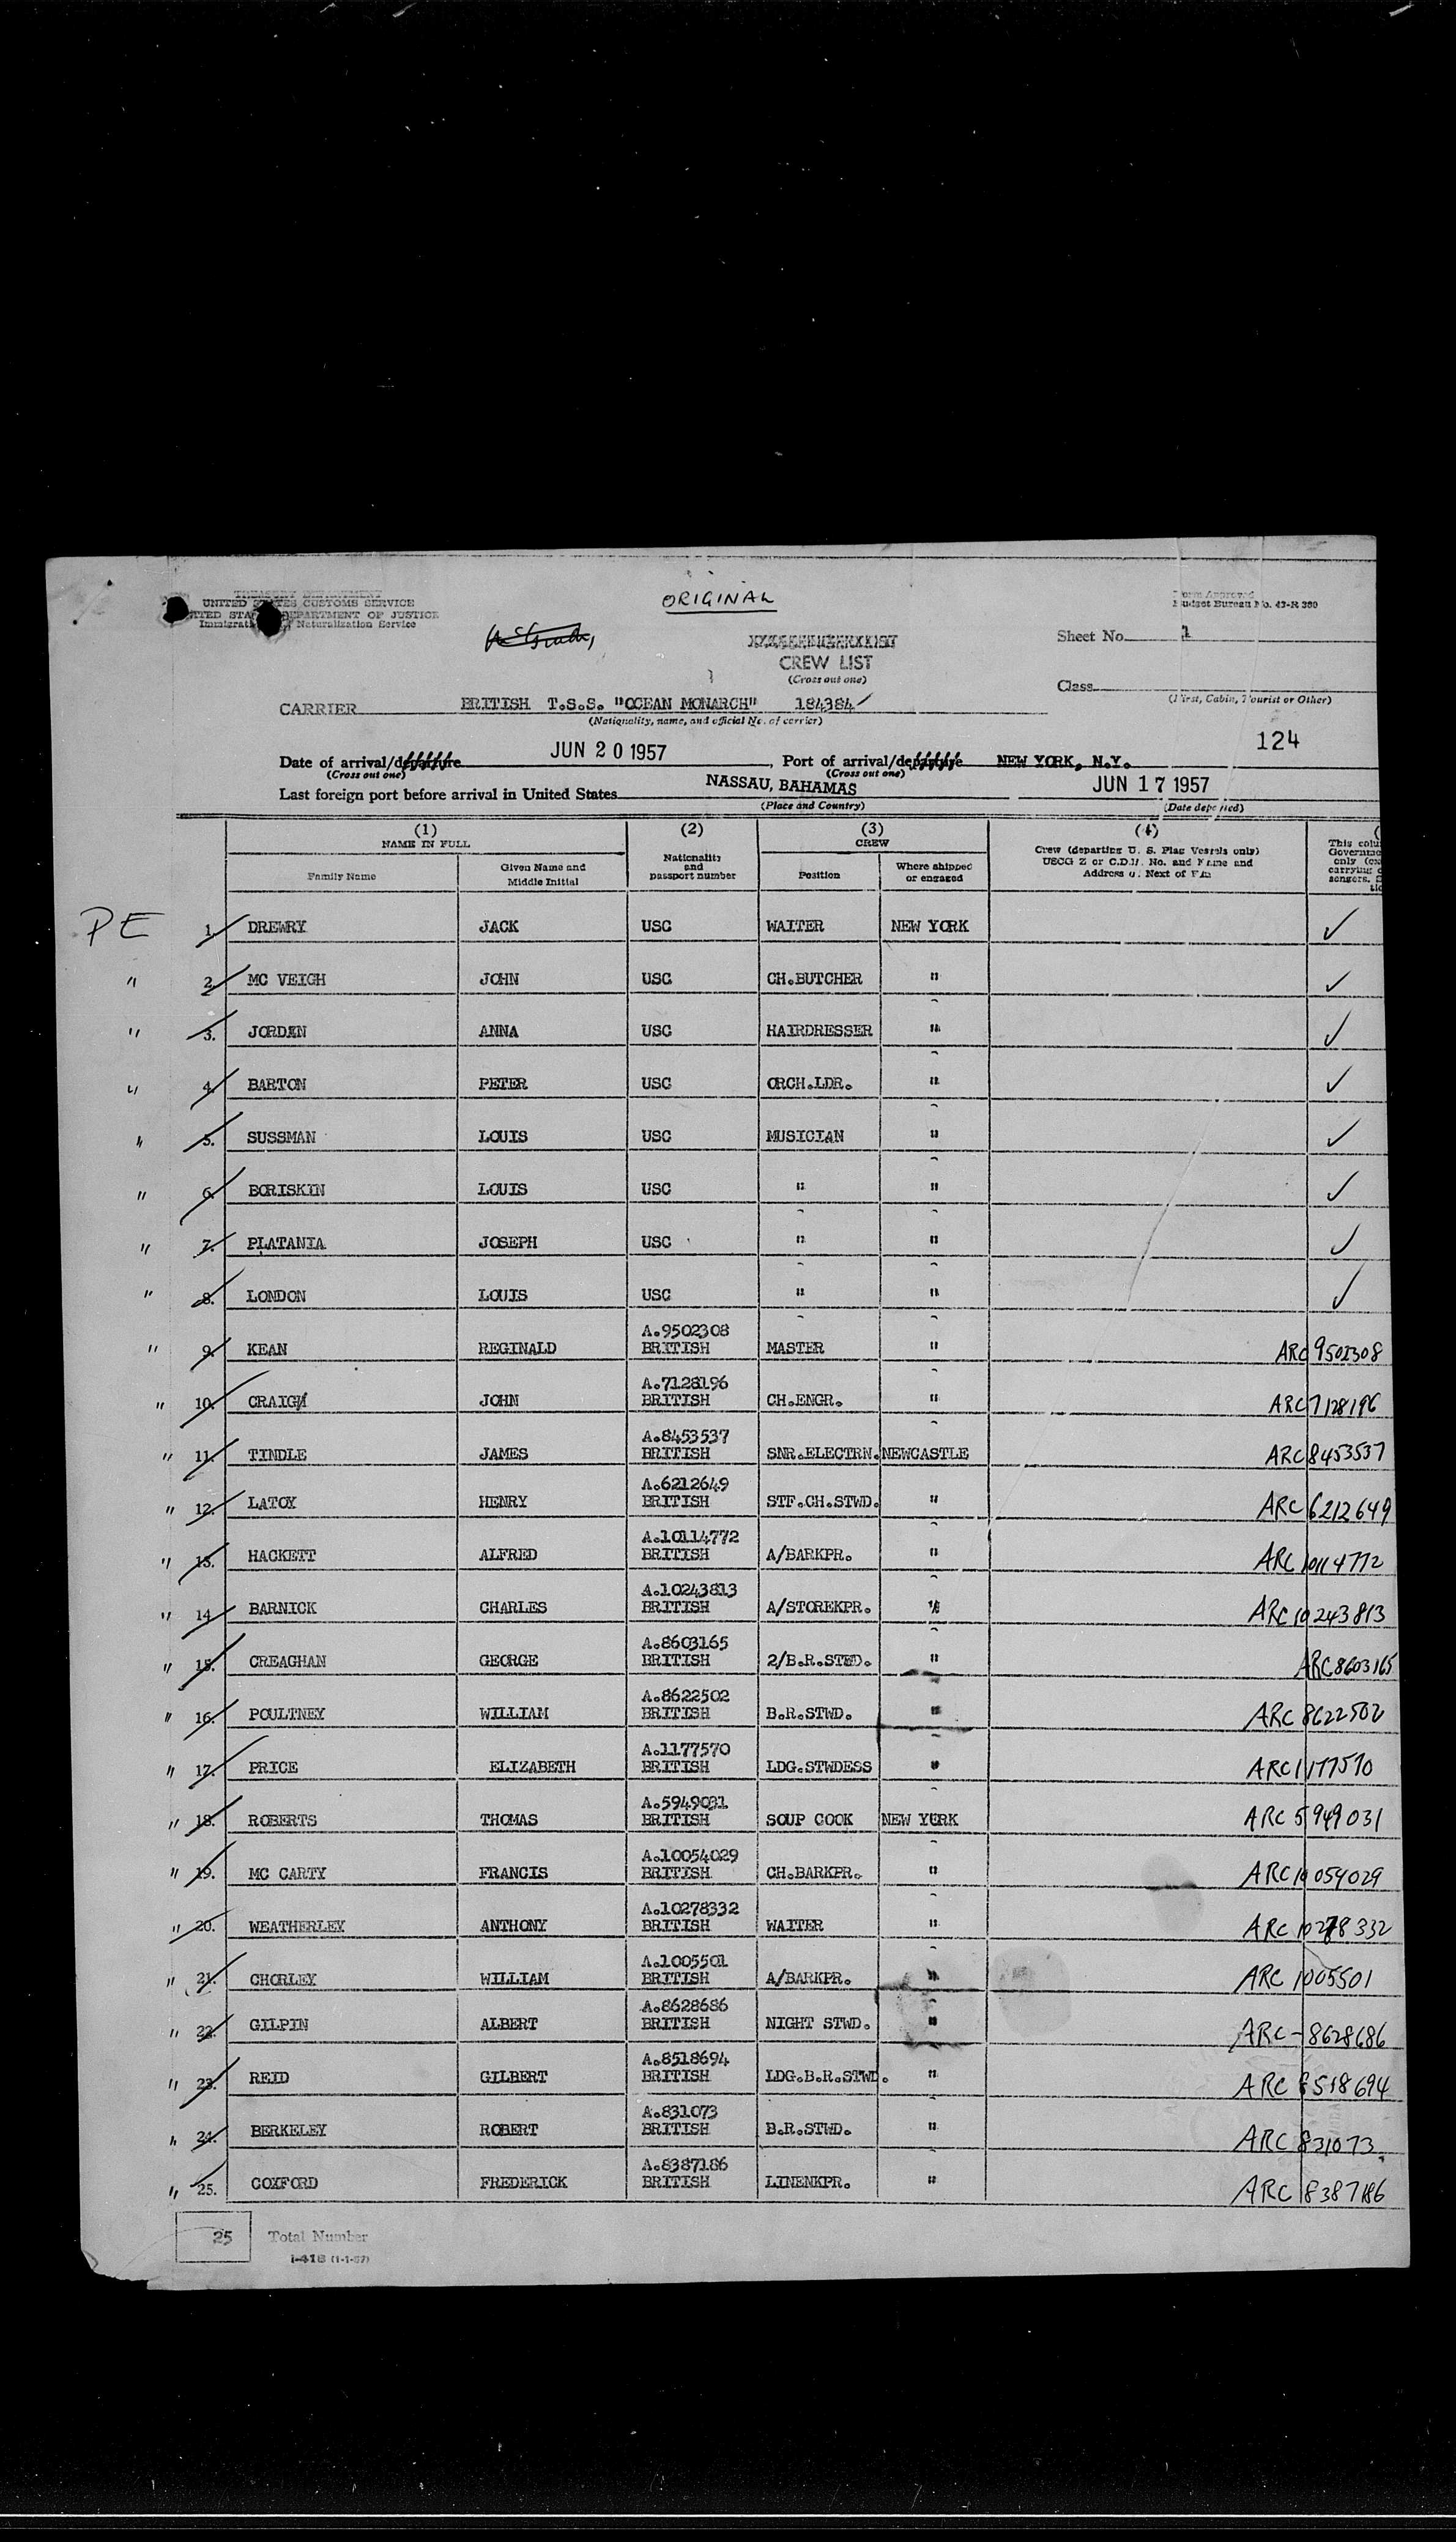 ORIGINAL
TREASURY DEPARTMENT
UNITED STATES CUSTOMS SERVICE
UNITED STATES DEPARTMENT OF JUSTICE
Immigration Naturalization Service
Form Approved
Budget Bureau No. 43-R 380
Sheet No. 1
CREW LIST
(Cross out one)
Class
(First, Cabin, Tourist or Other)
CARRIER BRITISH T.S.S. "OCEAN MONARCH" 184384
(Nationality, name, and official No. of carrier)
124
Date of arrival/departure JUN 20 1957, Port of arrival/departure NEW YORK, N.Y.
(Cross out one) (Cross out one)
Last foreign port before arrival in United States NASSAU, BAHAMAS JUN 17 1957
(Place and Country) (Date departed)
(1) NAME IN FULL (2) (3) CREW (4)
Family Name Given Name and Middle Initial Nationality and passport number Position Where shipped or engaged Crew (departing U. S. Flag Vessels only) USCG Z or C.D.B. No. and Name and Address of Next of Kin
PE 1. DREWRY JACK USC WAITER NEW YORK ✓
" 2. MC VEIGH JOHN USC CH.BUTCHER " ✓
" 3. JORDAN ANNA USC HAIRDRESSER " ✓
" 4. BARTON PETER USC ORCH.LDR. " ✓
" 5. SUSSMAN LOUIS USC MUSICIAN " ✓
" 6. BORISKIN LOUIS USC " " ✓
" 7. PLATANIA JOSEPH USC " " ✓
" 8. LONDON LOUIS USC " " ✓
A.9502308
" 9. KEAN REGINALD BRITISH MASTER " ARC 9502308
A.7128196
" 10. CRAIG JOHN BRITISH CH.ENGR. " ARC 7128196
A.8453537
" 11. TINDLE JAMES BRITISH SNR.ELECTRN. NEWCASTLE ARC 8453537
A.6212649
" 12. LATOY HENRY BRITISH STF.CH.STWD. " ARC 6212649
A.10114772
" 13. HACKETT ALFRED BRITISH A/BARKPR. " ARC 10114772
A.10243813
" 14. BARNICK CHARLES BRITISH A/STOREKPR. " ARC 10243813
A.8603165
" 15. CREAGHAN GEORGE BRITISH 2/B.R.STWD. " ARC 8603165
A.8622502
" 16. POULTNEY WILLIAM BRITISH B.R.STWD. " ARC 8622502
A.1177570
" 17. PRICE ELIZABETH BRITISH LDG.STWDESS " ARC 1177570
A.5949031
" 18. ROBERTS THOMAS BRITISH SOUP COOK NEW YORK ARC 5949031
A.10054029
" 19. MC CARTY FRANCIS BRITISH CH.BARKPR. " ARC 10054029
A.10278332
" 20. WEATHERLEY ANTHONY BRITISH WAITER " ARC 10278332
A.1005501
" 21. CHORLEY WILLIAM BRITISH A/BARKPR. " ARC 1005501
A.8628686
" 22. GILPIN ALBERT BRITISH NIGHT STWD. " ARC-8628686
A.8518694
" 23. REID GILBERT BRITISH LDG.B.R.STWD. " ARC 8518694
A.831073
" 24. BERKELEY ROBERT BRITISH B.R.STWD. " ARC 831073
A.8387186
" 25. COXFORD FREDERICK BRITISH LINENKPR. " ARC 8387186
25 Total Number
I-418 (1-1-57)